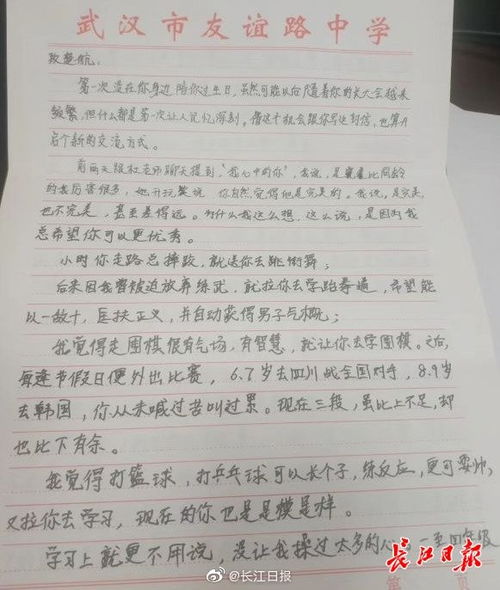 武汉市友谊路中学
致楚航:
第一次没在你身边陪你过生日,虽然可能以后随着你的长大会越来
频繁,但什么都是第一次让人记忆深刻。借这个机会跟你写这封信,也算开
启个新的交流方式。
前两天跟权老师聊天提到,"我心中的你",我说,是比同龄
的我厉害很多,她开玩笑说,你自然觉得他是完美的。我说,是完美,
也不完美,甚至差得远。为什么我这么想,这么说,是因为我
总希望你可以更优秀。
小时你走路总摔跤,就送你去跳街舞;
后来因我曾被迫放弃练武,就拉你去学跆拳道,希望能
以一敌十,匡扶正义,并自动获得男子气概;
我觉得走围棋很有气场,有智慧,就让你去学围棋。之后,
每逢节假日便外出比赛,6.7岁去四川战全国对手,8.9岁
去韩国,你从未喊过苦叫过累。现在三段,虽比上不足,却
也比下有余。
我觉得打篮球,打乒乓球可以长个子,练反应,更可耍帅,
又拉你去学习,现在的你也是是模是样。
学习上就更不用说,没让我操过太多的心,一至四年级
长江日报
@长江日报